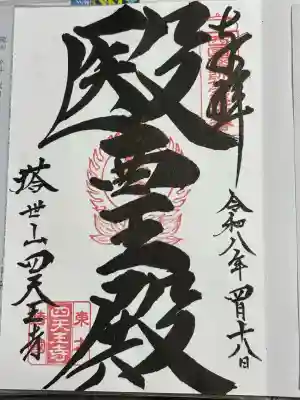 奉拝
令和八年四月十八日
醫王殿
塔世山四天王寺
四天王寺